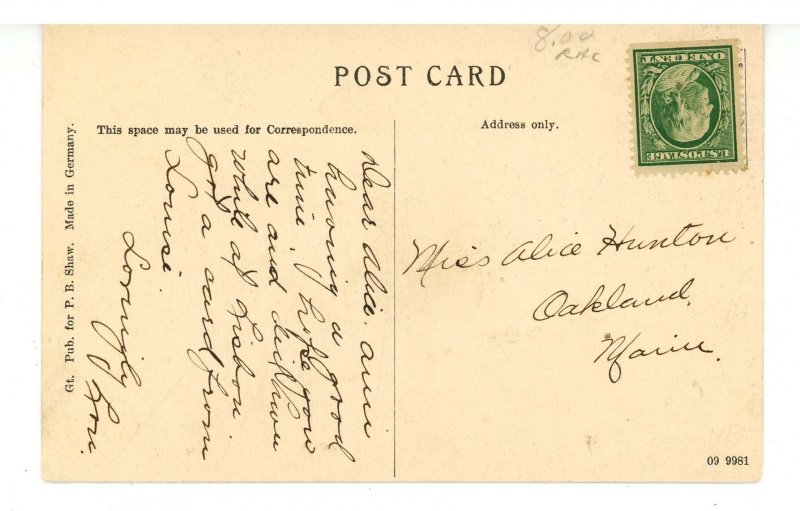 8.00
RHC
POST CARD
This space may be used for Correspondence.
Address only.
ONE CENT
U.S.POSTAGE
Dear Alice. am
having a good
time. I hope you
are and did have
while at Lisbon
got a card from
Louise
Lovingly
Lou.
Miss Alice Hunton
Oakland,
Maine.
Gt. Pub. for P. B. Shaw. Made in Germany.
09 9981